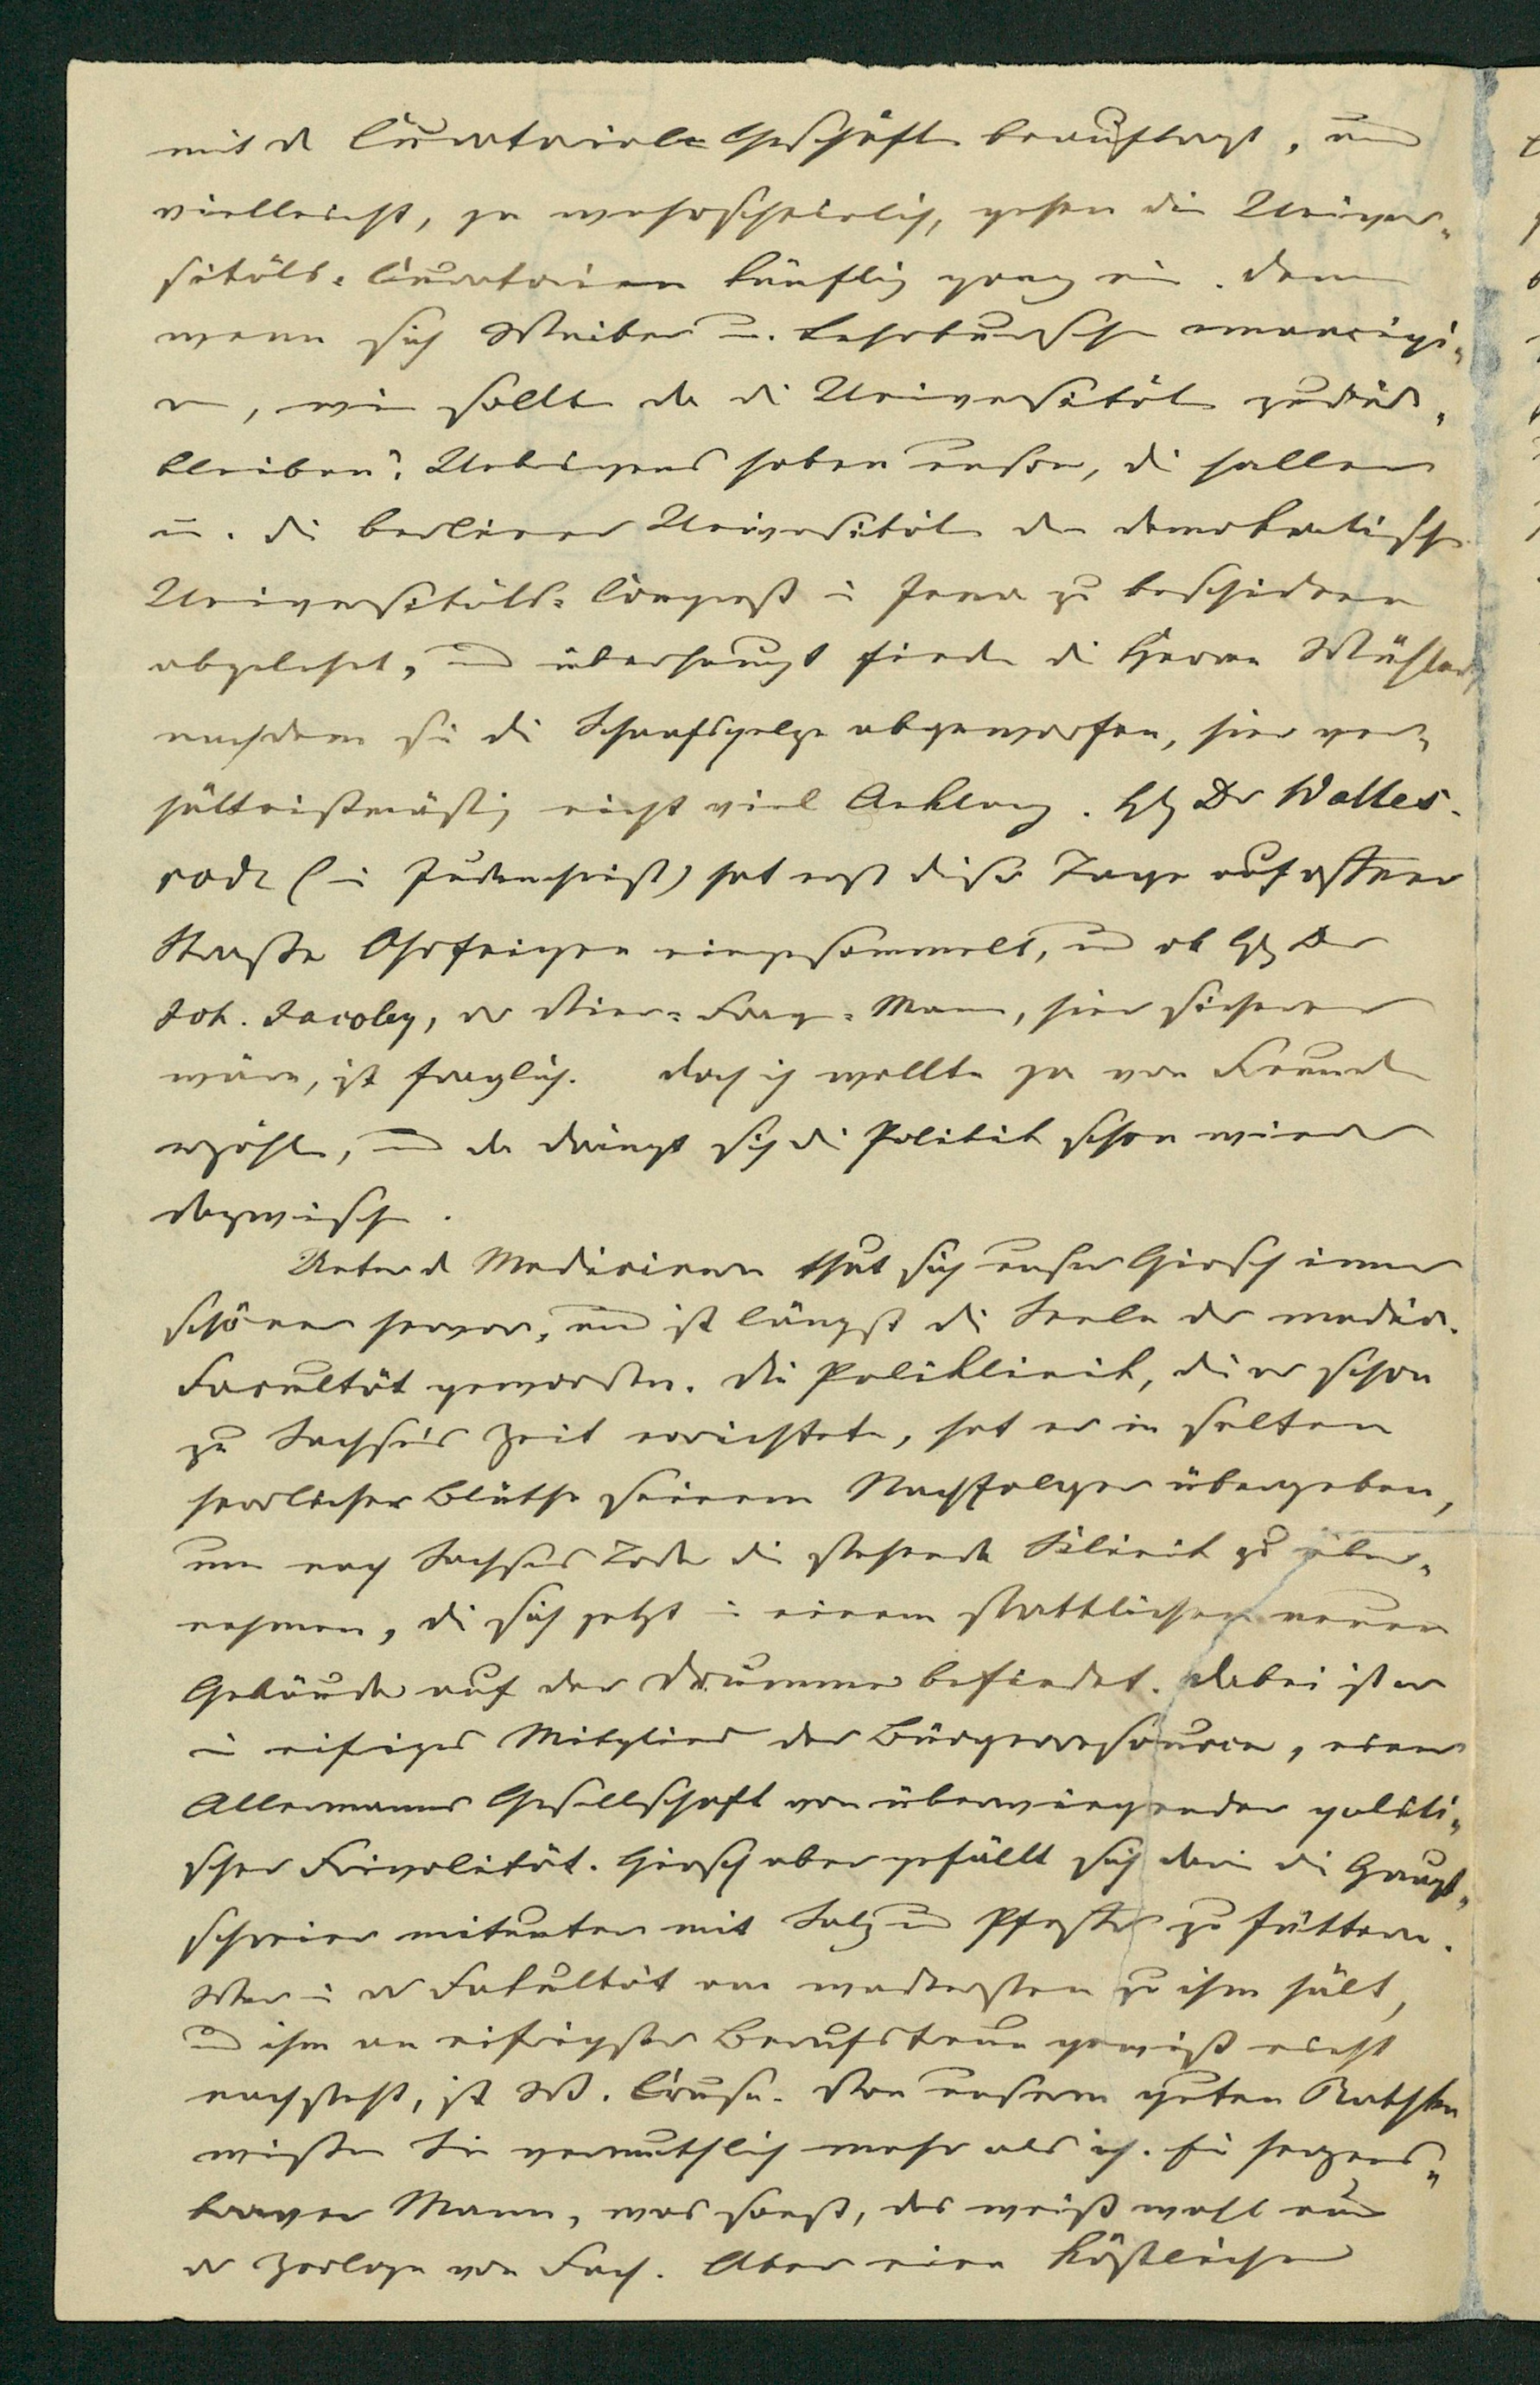 mit d Curatorial-Geschäften beauftragt, und
vielleicht, ja wahrscheinlich, gehen die Univer-
sitäts-Curatorien künftig ganz ein. Denn
wenn sich Weiber u. Lehrbursche emancipi-
ren, wie sollte da die Universitäten zurück-
bleiben? Uebrigens haben unsre, die hallen
u. die berliner Universität den demokratische
Universitäts-Congreß in Jena zu beschicken
abgelehnt, und überhaupt finden die Herren Wühler,
nachdem sie die Schaafspelze abgeworfen, hier ver-
hältnißmäßig nicht viel Anklang. H Dr Walles-
rode (ein Judenchrist) hat erst dieser Tage auf offener
Straße Ohrfeigen eingesammelt, und ob H Dr
Joh. Jacoby, der Vier-Frag-Mann, hier sicherer
wäre, ist fraglich. Doch ich wollte ja von Freunden
erzählen, und da drängt sich die Politik schon wieder
dazwischen.
Unter d Medicinern thut sich unser Hirsch immer
schöner hervor, und ist längst die Seele der medic.
Facultät geworden. Die Poliklinik, die er schon
zu Sachsens Zeit errichtete, hat er in selten
herrlicher Blüthe seinem Nachfolger übergeben,
um nach Sachsens Tode die stehende Klinik zu über-
nehmen, die sich jetzt in einem stattlichen neuen
Gebäude auf der Drumme befindet. Dabei ist er
ein eifriges Mitglied der Bürgerressource, einer
Allermanns Gesellschaft von überwiegender politi-
scher Frivolität. Hirsch aber gefällt sich darin die Haupt-
schreier mitunter mit Salz und Pfeffer zu füttern.
Wer in der Fakultät am wackersten zu ihm hält,
und ihm an eifrigster Berufstreue gewiß nicht
nachsteht, ist W. Cruse. Von unserm guten Rathke
wissen Sie vermuthlich mehr als ich. Ein herzens-
braver Mann, was sonst, das weiß wohl nur
der Zoologe von Fach. Aber einen köstlichen